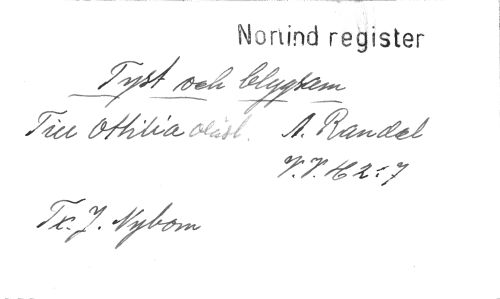 Norlind register
Tyst och blygsam
Till Othilia oläsl. A. Randel
V.V. H 2:7
Tx. J. Nybom